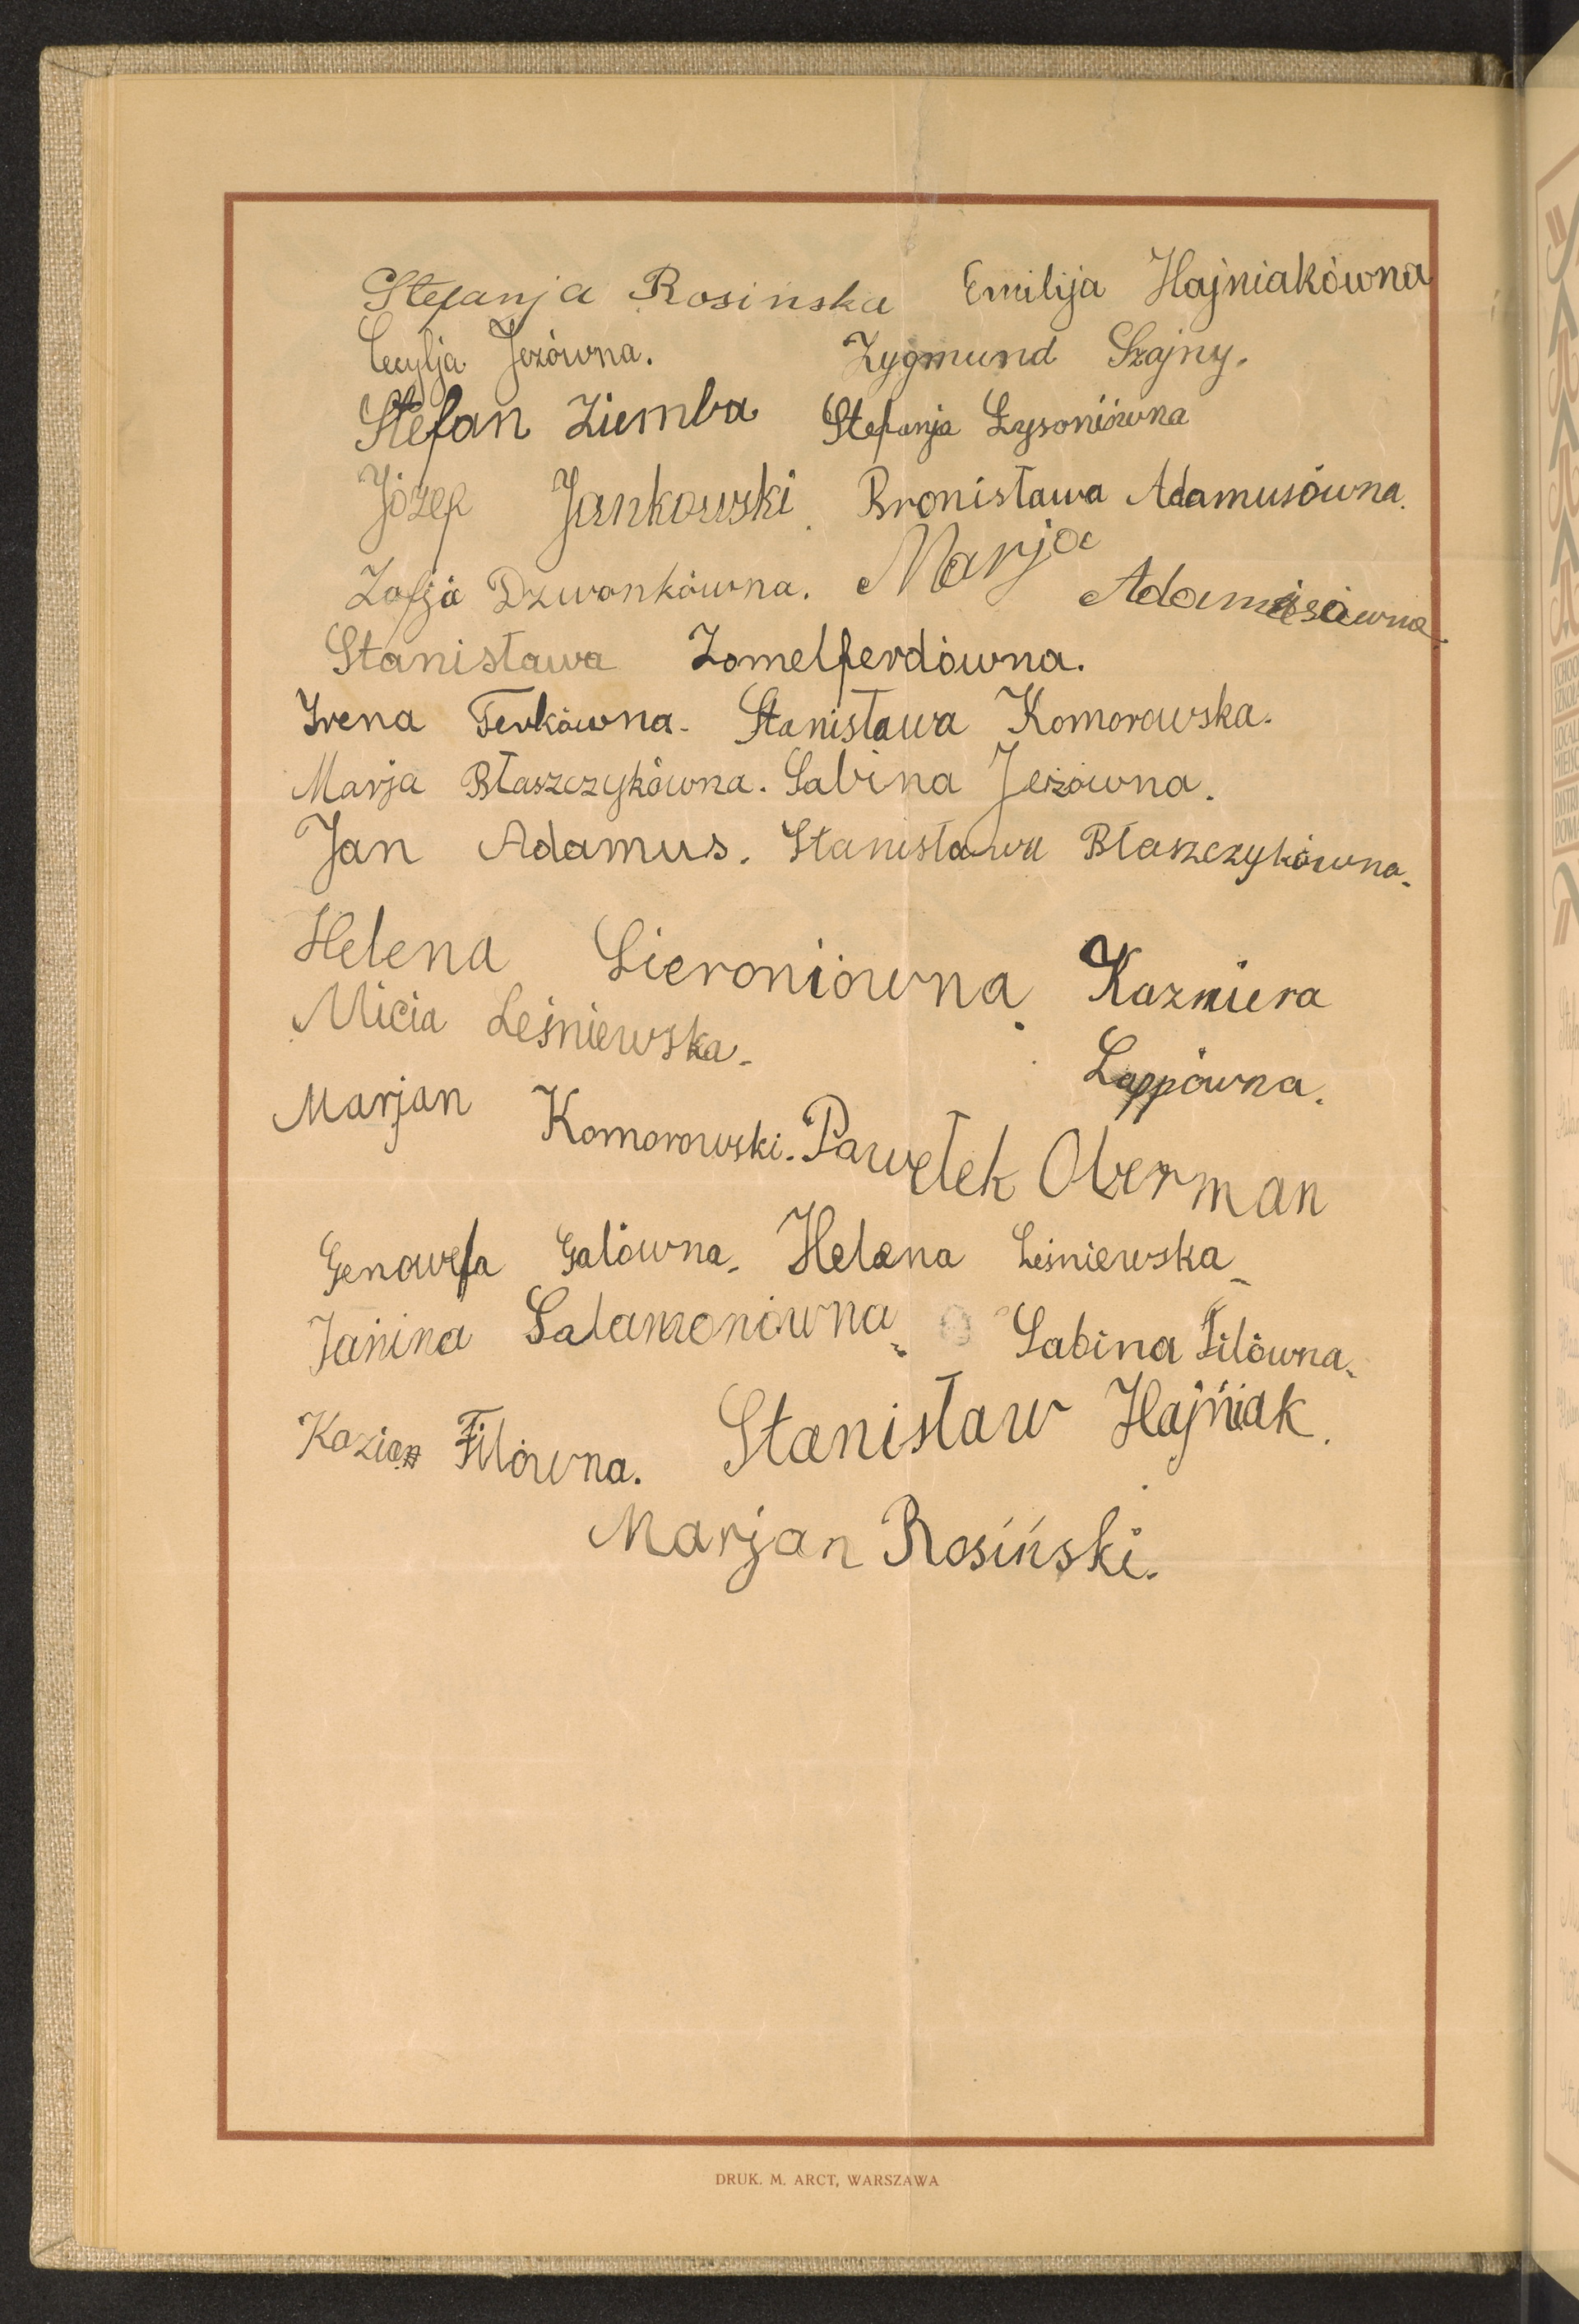 Stefanja Rosinska Emilija Hajniakówna
Cecylja Jeżówna. Zygmund Szajny.
Stefan Ziemba Stefanja Łysoniówna
Józef Jankowski. Bronisława Adamusówna.
Zofja Dzwonkówna. Marja Adamusówna
Stanisława Zomelferdówna.
Irena Ferkówna. Stanisława Komorowska.
Marja Błaszczykówna. Sabina Jeżówna.
Jan Adamus. Stanisława Błaszczykówna.
Helena Sieroniówna. Kazmiera
Micia Leśniewska. Lappówna.
Marjan Komorowski. Pawełek Oberman
Genowefa Galówna. Helena Leśniewska
Janina Salamonówna. Sabina Filówna.
Kazia Filówna. Stanisław Hajniak.
Marjan Rosiński.
DRUK. M. ARCT, WARSZAWA